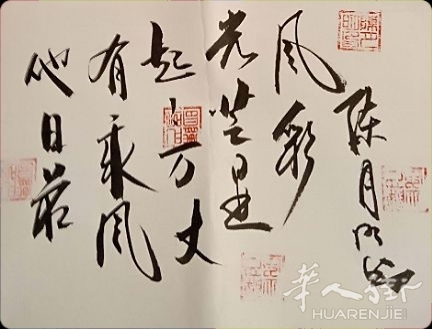 他日若
有乘风
起万丈
光芒
风彩
陈月明
华人街
HUARENJIE